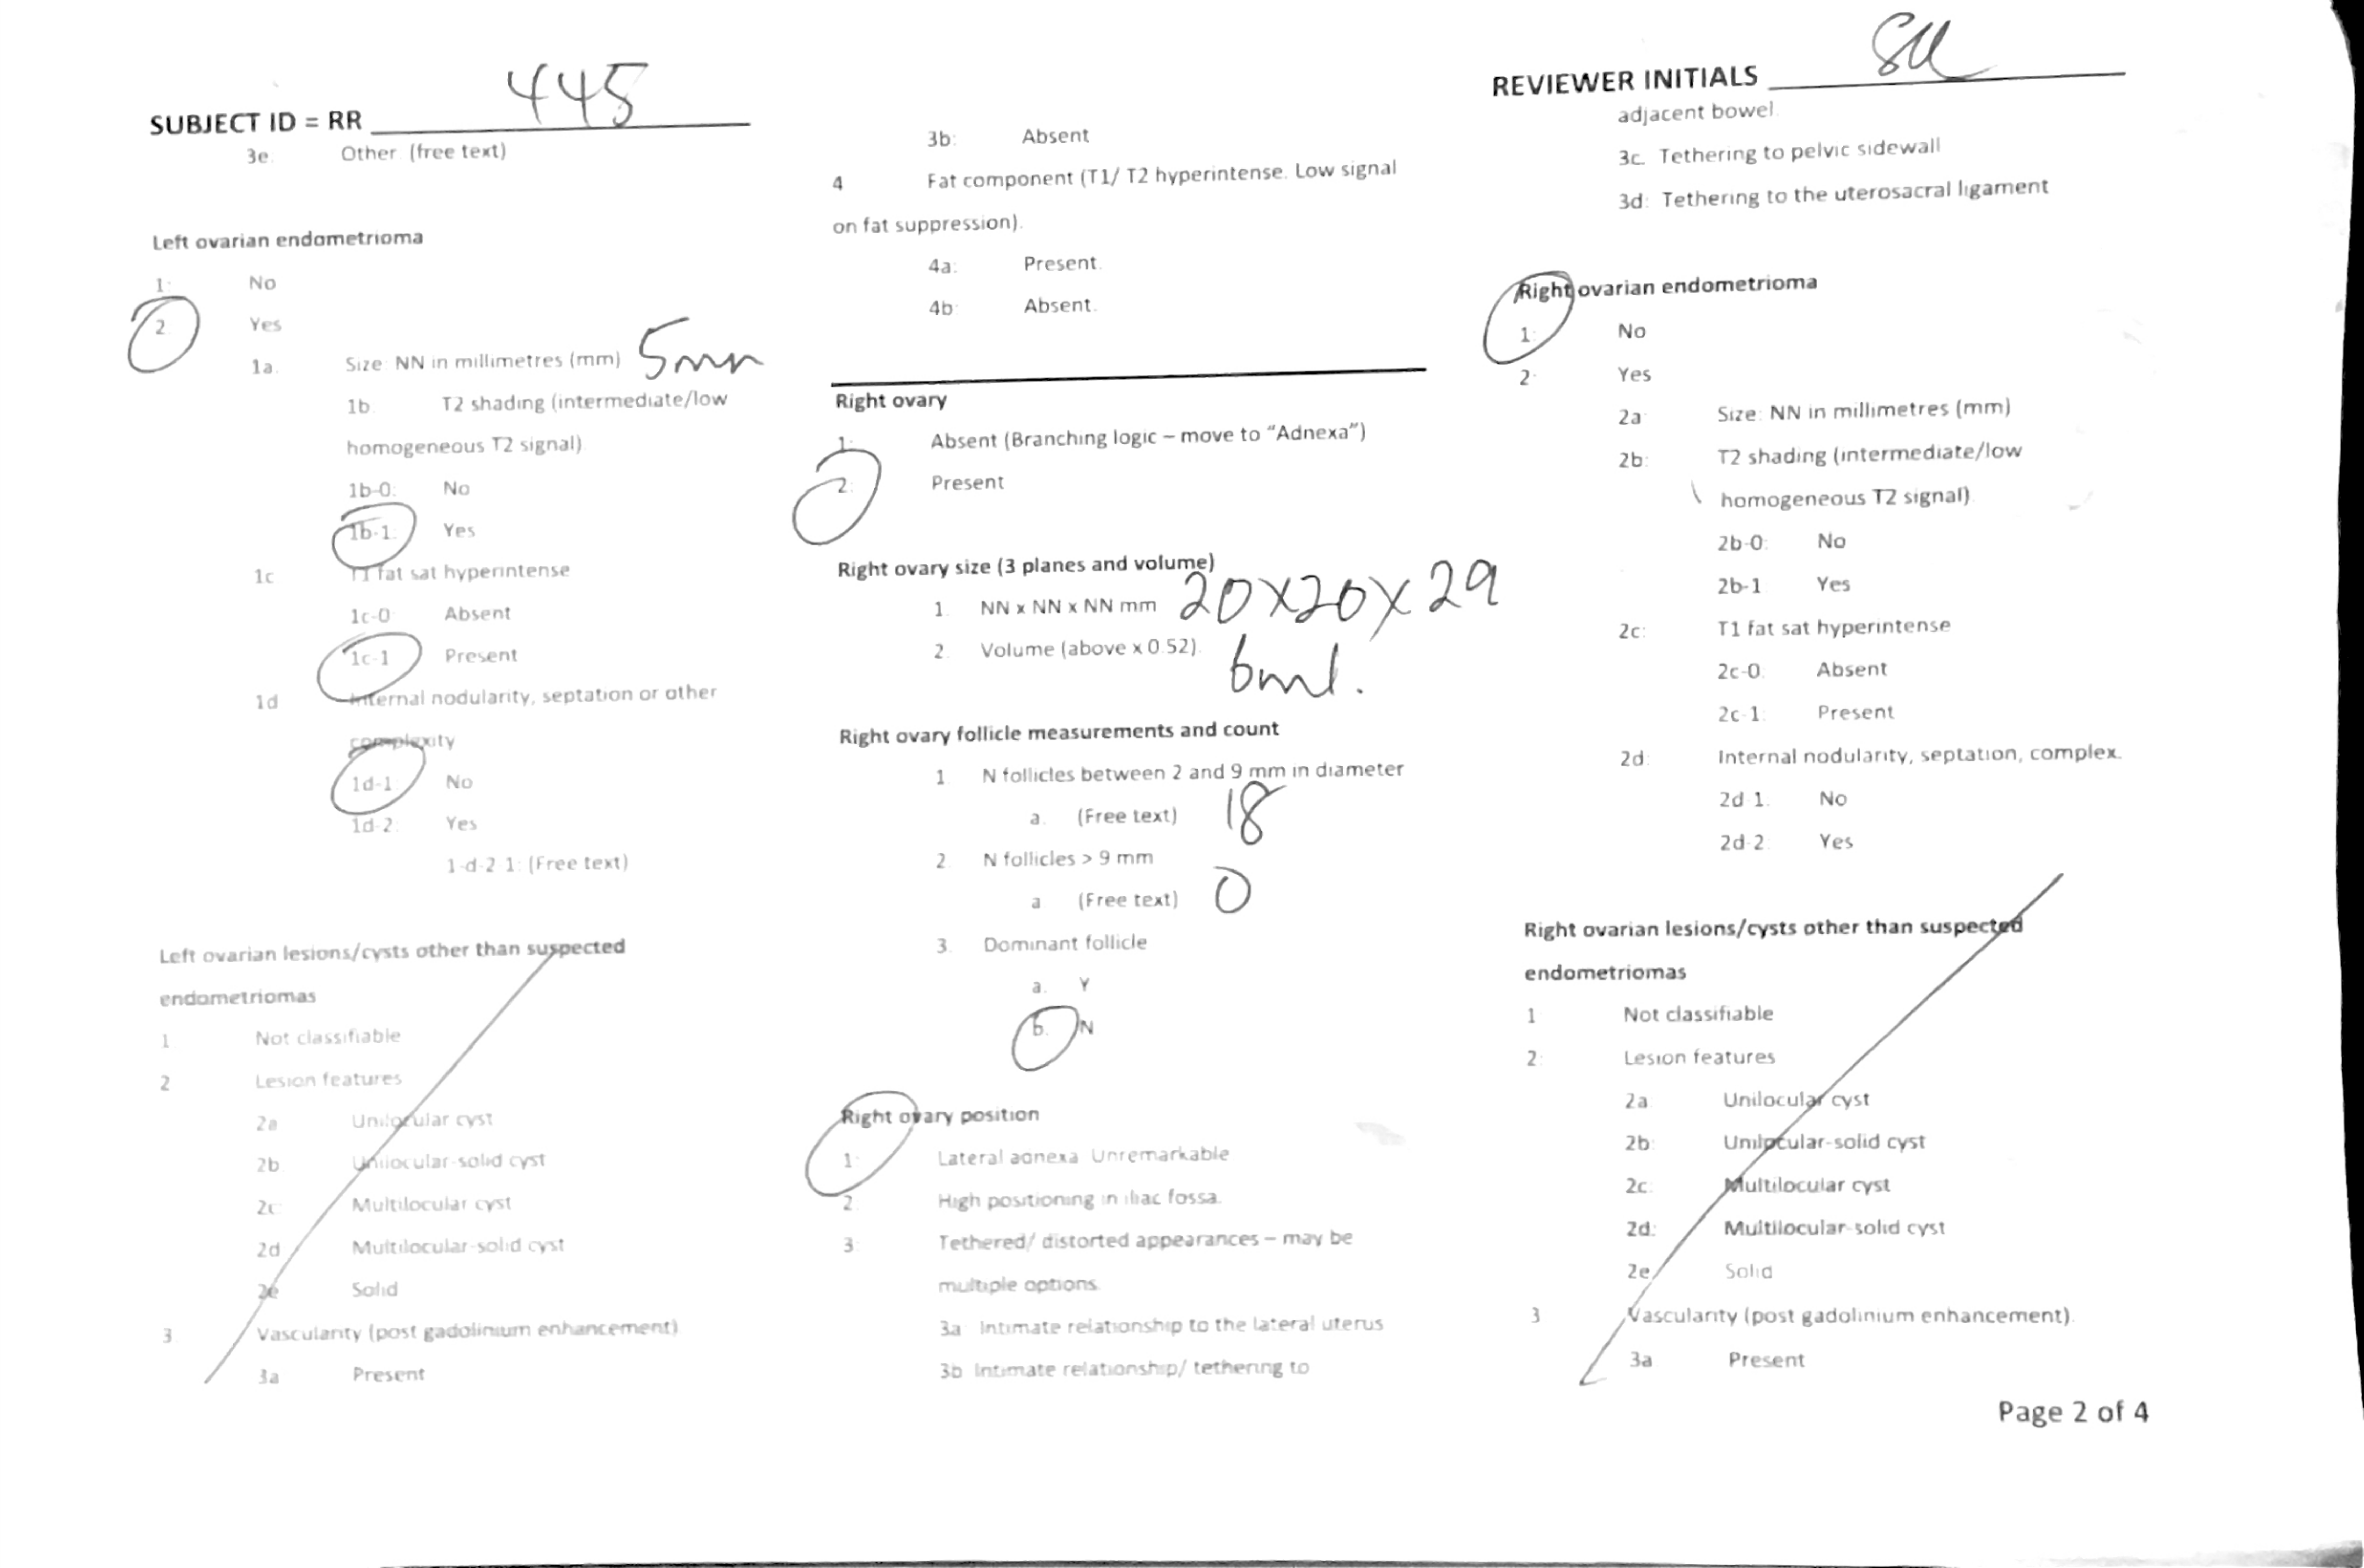 SUBJECT ID = RR 445
3e. Other (free text)
Left ovarian endometrioma
1: No
2. Yes
1a. Size: NN in millimetres (mm) 5mm
1b. T2 shading (intermediate/low
homogeneous T2 signal)
1b-0: No
1b-1: Yes
1c T1 fat sat hyperintense
1c-0 Absent
1c-1 Present
1d Internal nodularity, septation or other
complexity
1d-1 No
1d-2: Yes
1-d-2 1: (Free text)
Left ovarian lesions/cysts other than suspected
endometriomas
1 Not classifiable
2 Lesion features
2a Unilocular cyst
2b Unilocular-solid cyst
2c Multilocular cyst
2d Multilocular-solid cyst
2e Solid
3. Vascularity (post gadolinium enhancement)
3a Present
3b: Absent
4 Fat component (T1/ T2 hyperintense. Low signal
on fat suppression).
4a: Present.
4b: Absent.
Right ovary
1: Absent (Branching logic – move to “Adnexa”)
2: Present
Right ovary size (3 planes and volume)
1. NN x NN x NN mm 20x20x29
2. Volume (above x 0.52). 6ml.
Right ovary follicle measurements and count
1 N follicles between 2 and 9 mm in diameter
a. (Free text) 18
2. N follicles > 9 mm
a (Free text) 0
3. Dominant follicle
a. Y
b. N
Right ovary position
1: Lateral adnexa Unremarkable
2. High positioning in iliac fossa.
3: Tethered/ distorted appearances – may be
multiple options.
3a Intimate relationship to the lateral uterus
3b Intimate relationship/ tethering to
REVIEWER INITIALS
adjacent bowel.
3c. Tethering to pelvic sidewall
3d: Tethering to the uterosacral ligament
Right ovarian endometrioma
1: No
2: Yes
2a Size: NN in millimetres (mm)
2b: T2 shading (intermediate/low
homogeneous T2 signal)
2b-0: No
2b-1 Yes
2c: T1 fat sat hyperintense
2c-0: Absent
2c-1: Present
2d: Internal nodularity, septation, complex.
2d-1. No
2d-2: Yes
Right ovarian lesions/cysts other than suspected
endometriomas
1 Not classifiable
2: Lesion features
2a Unilocular cyst
2b: Unilocular-solid cyst
2c: Multilocular cyst
2d: Multilocular-solid cyst
2e Solid
3 Vascularity (post gadolinium enhancement).
3a Present
Page 2 of 4